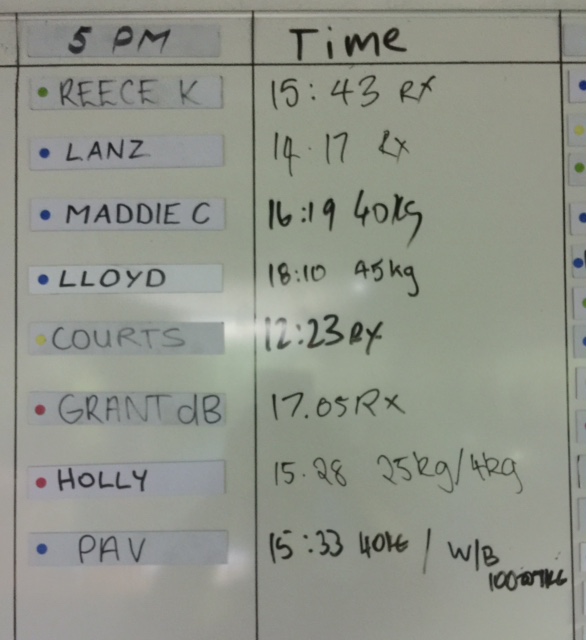 5 PM Time
REECE K 15:43 RX
LANZ 14.17 Rx
MADDIE C 16:19 40kg
LLOYD 18:10 45kg
COURTS 12:23 RX
GRANT dB 17.05 RX
HOLLY 15.28 25kg/4kg
PAV 15:33 40KG / W/B